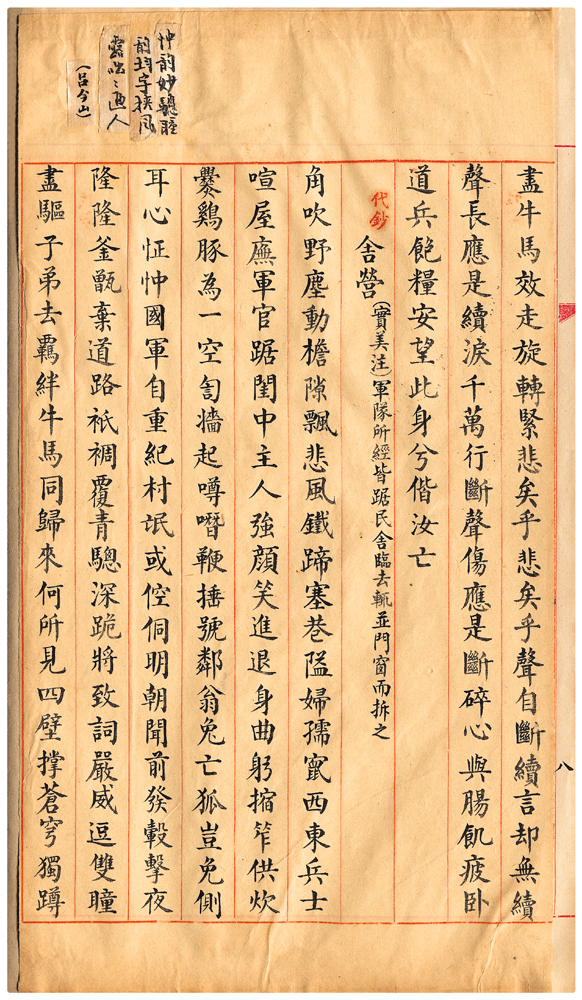 盡牛馬效走旋轉緊悲矣乎悲矣乎聲自斷續言却無續
聲長應是續淚千萬行斷聲傷應是斷碎心與腸飢疲卧
道兵飽糧安望此身兮偕汝亡
代鈔
舍營(實美注)軍隊所經皆踞民舍臨去輒並門窗而拆之
角吹野塵動檐隙飄悲風鐵蹄塞巷隘婦孺竄西東兵士
喧屋廡軍官踞閨中主人強顏笑進退身曲躬摍笮供炊
爨鷄豚為一空訇牆起噂噆鞭捶號鄰翁兔亡狐豈免側
耳心怔忡國軍自重紀村氓或倥侗明朝聞前發轂擊夜
隆隆釜甑棄道路衹裯覆青驄深跪將致詞嚴威逗雙瞳
盡驅子弟去覊絆牛馬同歸來何所見四壁撐蒼穹獨蹲
忡韵妙驄瞳
韵均字挾風
霜咄咄逼人
(呂今山)
八